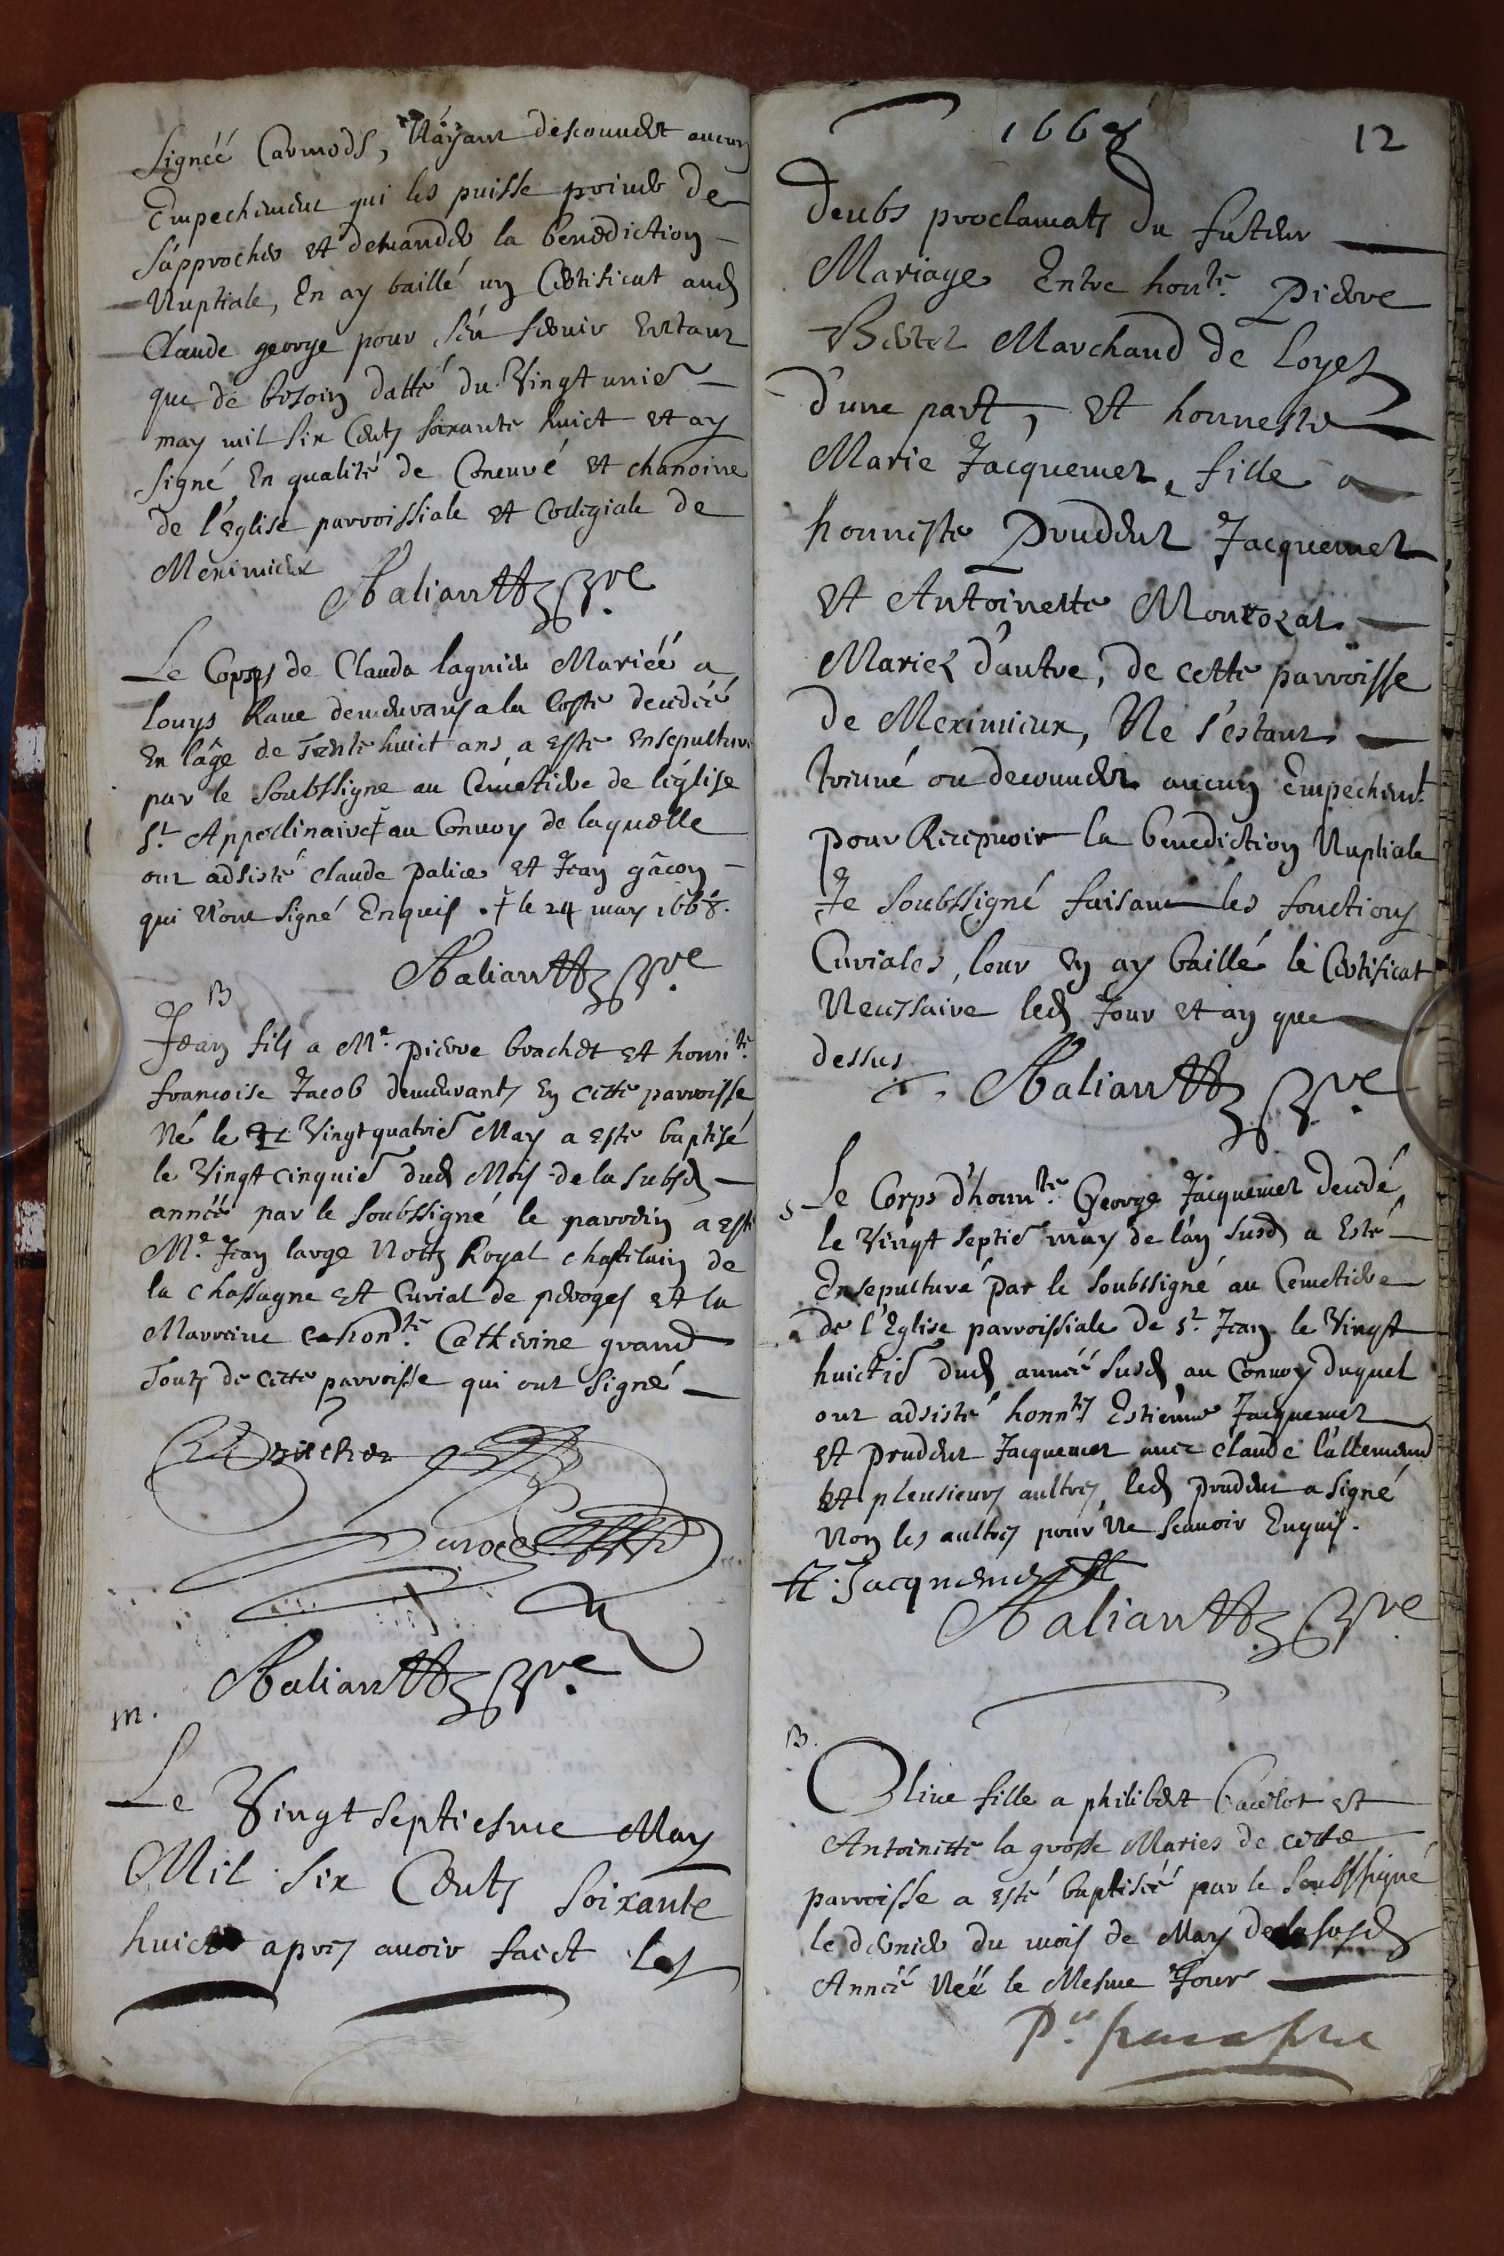 Signéé Carmods, N'ayant descouuert aucun
Empechement qui les puisse priuer de
s'approcher et demander la benediction
Nuptiale, En ay baillé un Certificat aud
Claude george pour s'en seruir Entant
que de besoin datté du Vingt unie
may mil six Cents soixante huict et ay
signé En qualité de Concuré et chanoine
de l'eglise parroissiale et Collegiale de
Meximieux
Le Corps de Clauda lagnier Mariéé a
louys Raue demeurans a la Coste decedéé
En l'âge de Trente huict ans a este ensepulture
par le soubssigne au Cemetiere de l'église
St Appollinaire ✝ au Conuoy de laquelle
ont adsisté Claude Palice et Jean gâcon
qui n'ont signé Enquis . ✝ le 24 may 1668.
B
Jean fils a Me Pierre brachet et honnte
francoise Jacob demeurants En cette parroisse
Né le Vingt quatrie May a este baptisé
le Vingt cinquie dud Mois de la subsd
annéé par le soubssigné le parrein a esté
Me Jean large Nottre Royal chastelain de
la Chassagne et Curial de peroges et la
Marreine honte Catherine grand
Touts de cette parroisse qui ont signé
m.
Le Vingt septiesme May
Mil six Cents soixante
huict apres auoir faict les
1668
12
deubs proclamats du futeur
Mariage Entre honte Pierre
Marchand de loyes
d'une part, et honneste
Marie Jacquemet, fille a
honneste Prudent Jacquemet
et Antoinette Montozat
Mariez d'autre, de cette parroisse
de Meximieux, Ne s'estant
treuué ou decouuert aucun Empechemt
pour Recepuoir la benediction Nuptiale
Je soubssigné faisant les fonctions
Curiales, leur En ay baillé le Certificat
Necessaire led Jour et an que
dessus
S
Le Corps d'honnte George Jacquemet decedé
le Vingt septie may de l'an susd a Esté
Ensepulturé par le soubssigné au Cemetiere
de l'Eglise parroissiale de St Jean le Vingt
huictie dud annéé susd au Conuoy duquel
ont adsisté honntes Estienne Jacquemet
et prudent Jacquemet auec Claude l'allemand
et pleusieurs aultres, led prudent a signé
Non les aultres pour Ne scauoir Enquis.
Jacquemet
B.
Oliue fille a philibert et
Antoinette la grosse Maries de cette
parroisse a esté baptiséé par le soubssigné
le dernier du mois de May de la susd
Annéé Néé le Mesme Jour